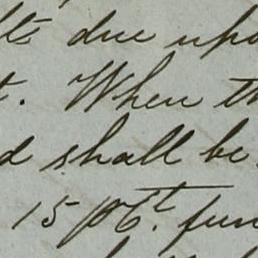 due upo
. When th
d shall be
15 pCt. fun